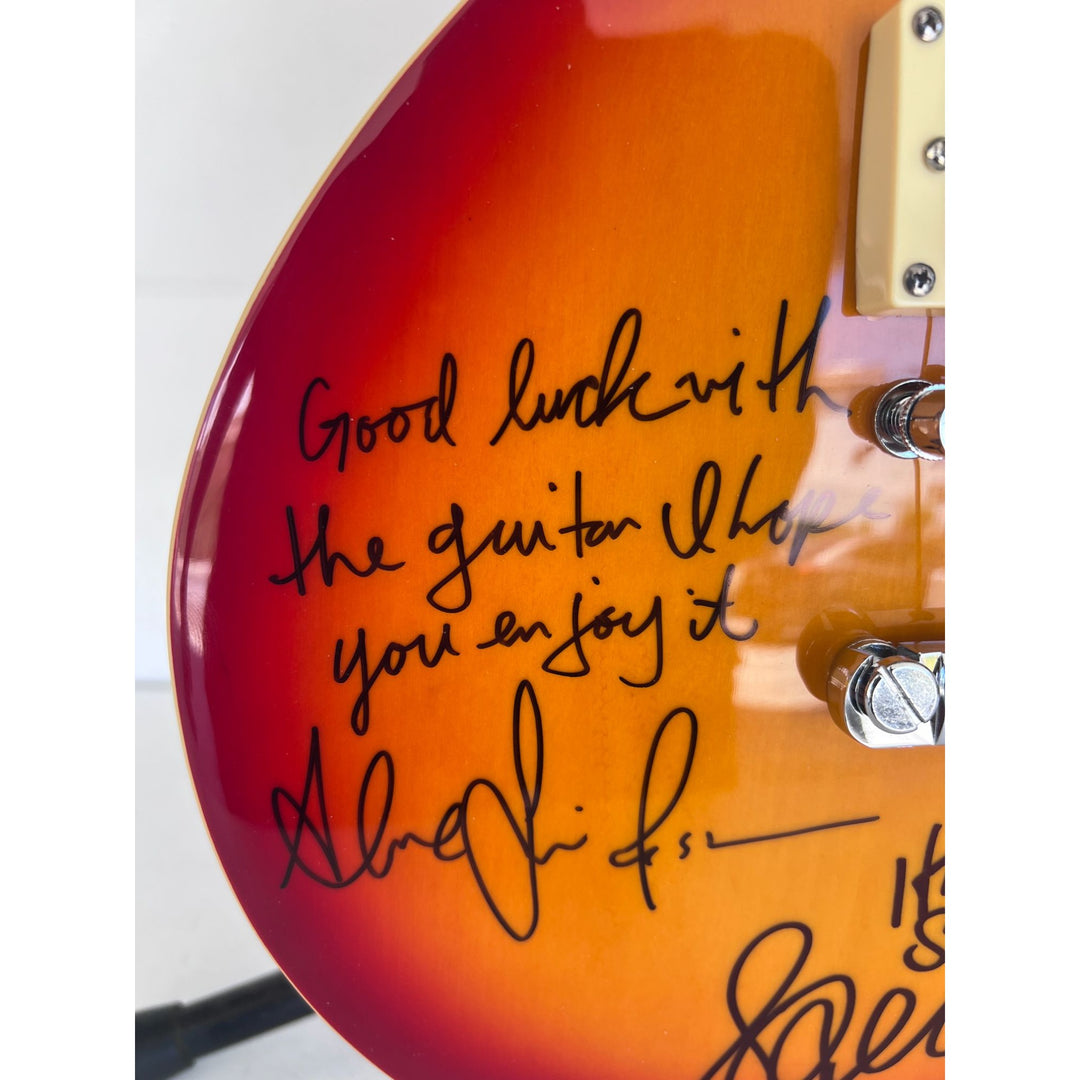 Good luck with
the guitar I hope
you enjoy it
Alex Lifeson